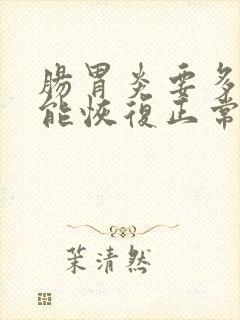 腸胃炎要多
能恢復正常
茉清然